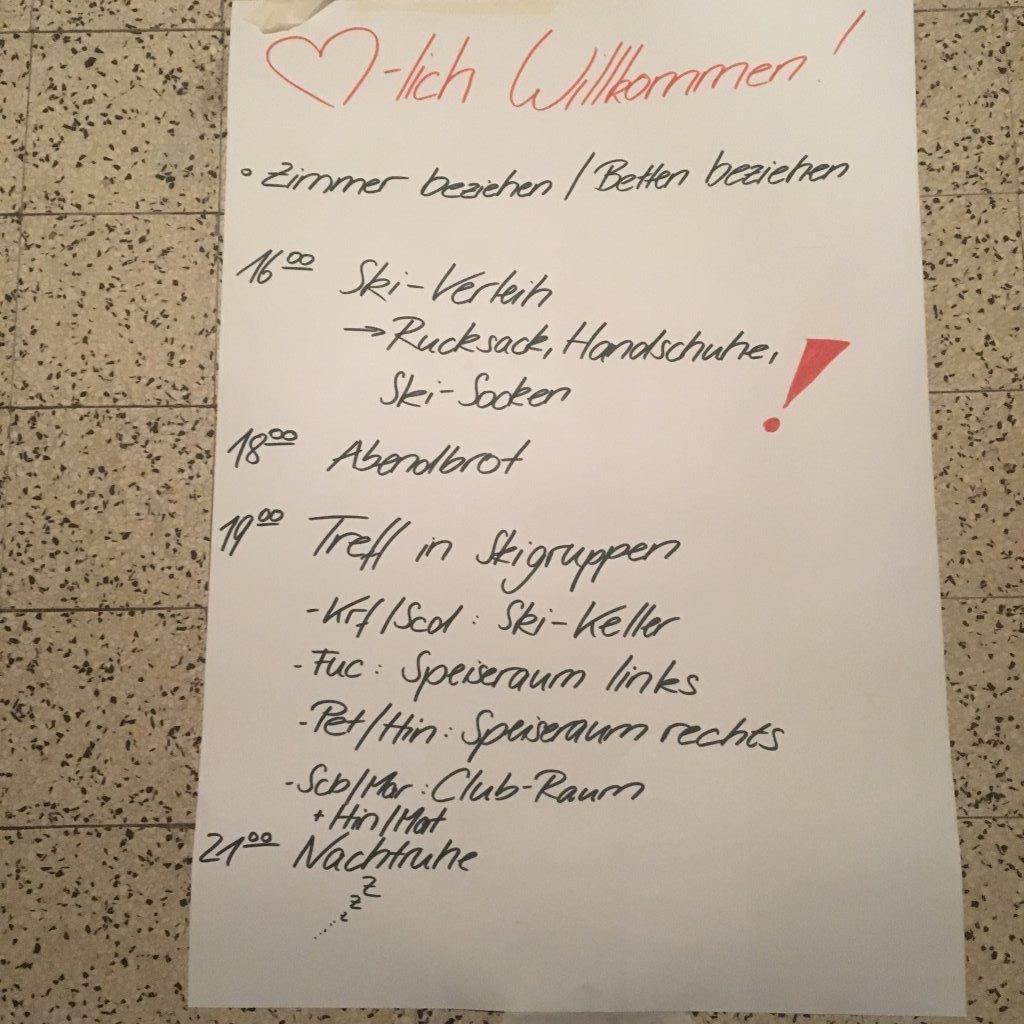 ♡-lich Willkommen!
• Zimmer beziehen / Betten beziehen
16⁰⁰ Ski-Verleih
→ Rucksack, Handschuhe, !
Ski-Socken
18⁰⁰ Abendbrot
19⁰⁰ Treff in Skigruppen
- Krf/Scd: Ski-Keller
- Fuc: Speiseraum links
- Pet/Hin: Speiseraum rechts
- Scb/Mar: Club-Raum
+ Hin/Mat
21⁰⁰ Nachtruhe
z z z .....